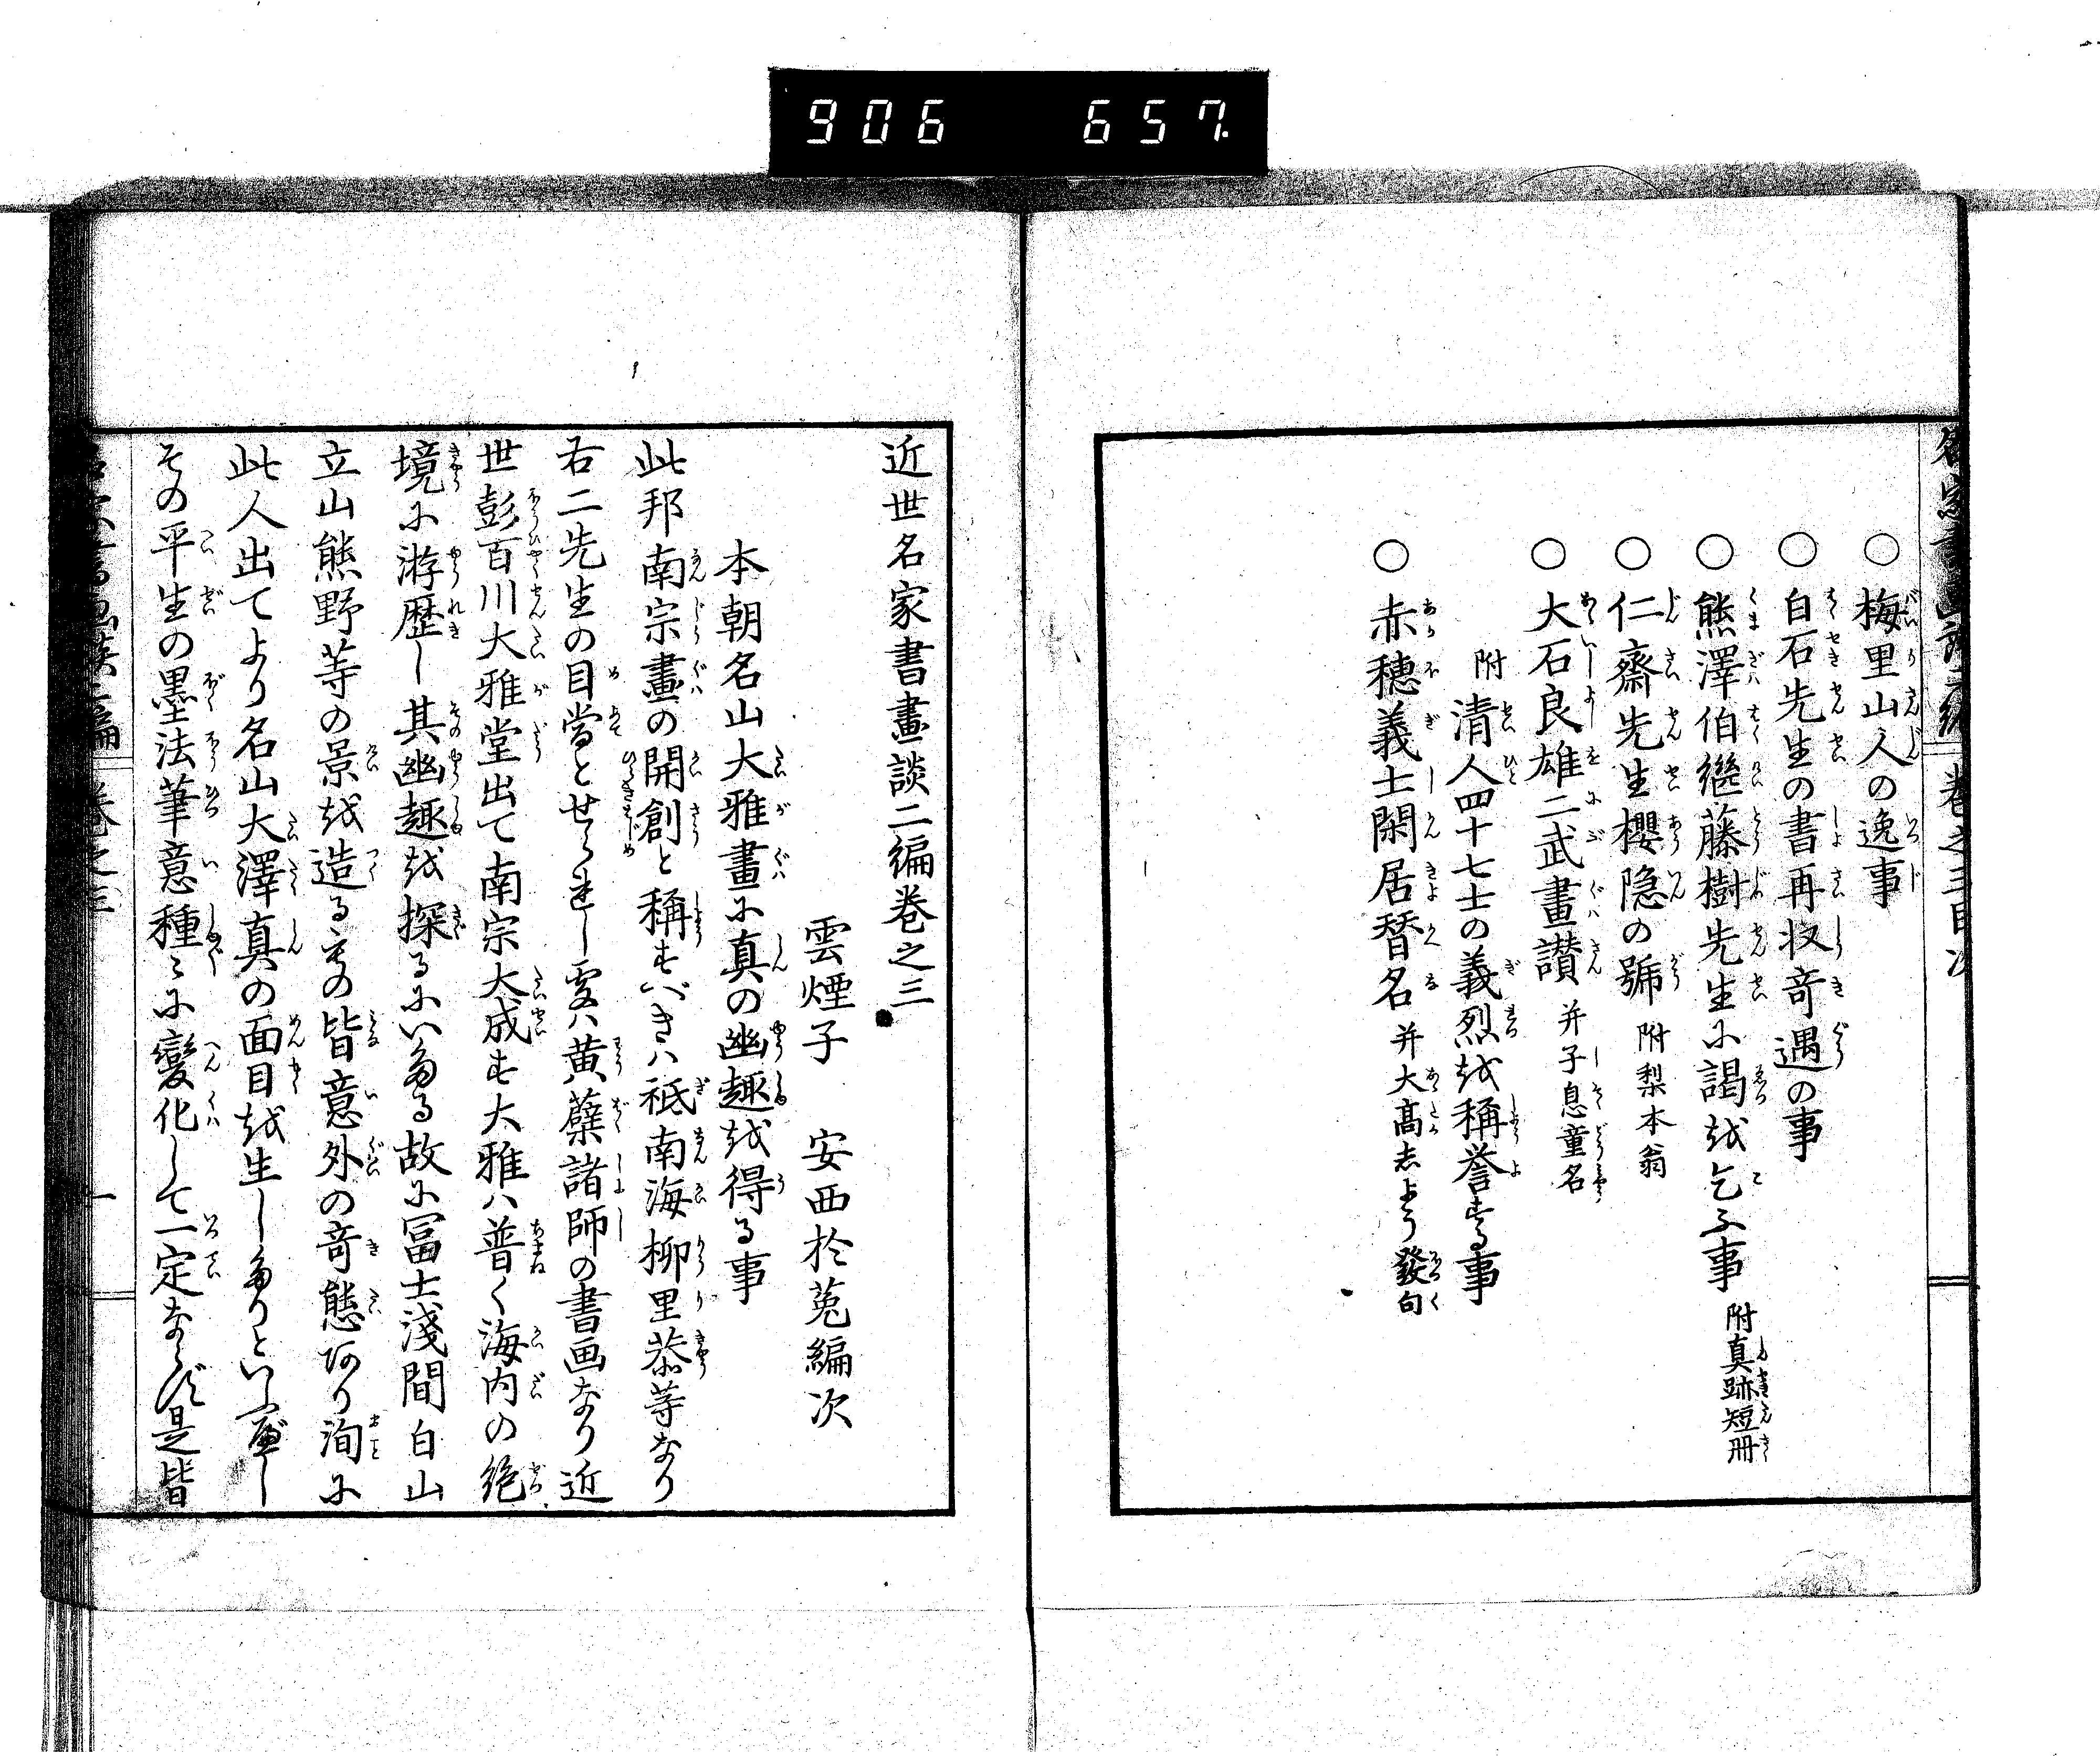 906 657.
巻之三目次
○梅里山人の逸事
○白石先生の書再収奇遇の事
○熊澤伯継藤樹先生に謁を乞ふ事 附真跡短冊
○仁齋先生櫻隠の號 附梨本翁
○大石良雄二武畫讃 并子息童名
附清人四十七士の義烈を稱誉する事
○赤穗義士閑居替名 并大高志よう發句
近世名家書畫談二編巻之三
雲煙子 安西於菟編次
本朝名山大雅畫に真の幽趣を得る事
此邦南宗畫の開創と稱すべきハ祗南海柳里恭等なり
右二先生の目當とせられし處ハ黄蘗諸師の書画なり近
世彭百川大雅堂出て南宗大成す大雅ハ普く海内の絶
境に游歴し其幽趣を探るにいたる故に冨士淺間白山
立山熊野等の景を造るもの皆意外の奇態あり洵に
此人出てより名山大澤真の面目を生したりといふべし
その平生の墨法筆意種〻に變化して一定ならず是皆
巻之三
一